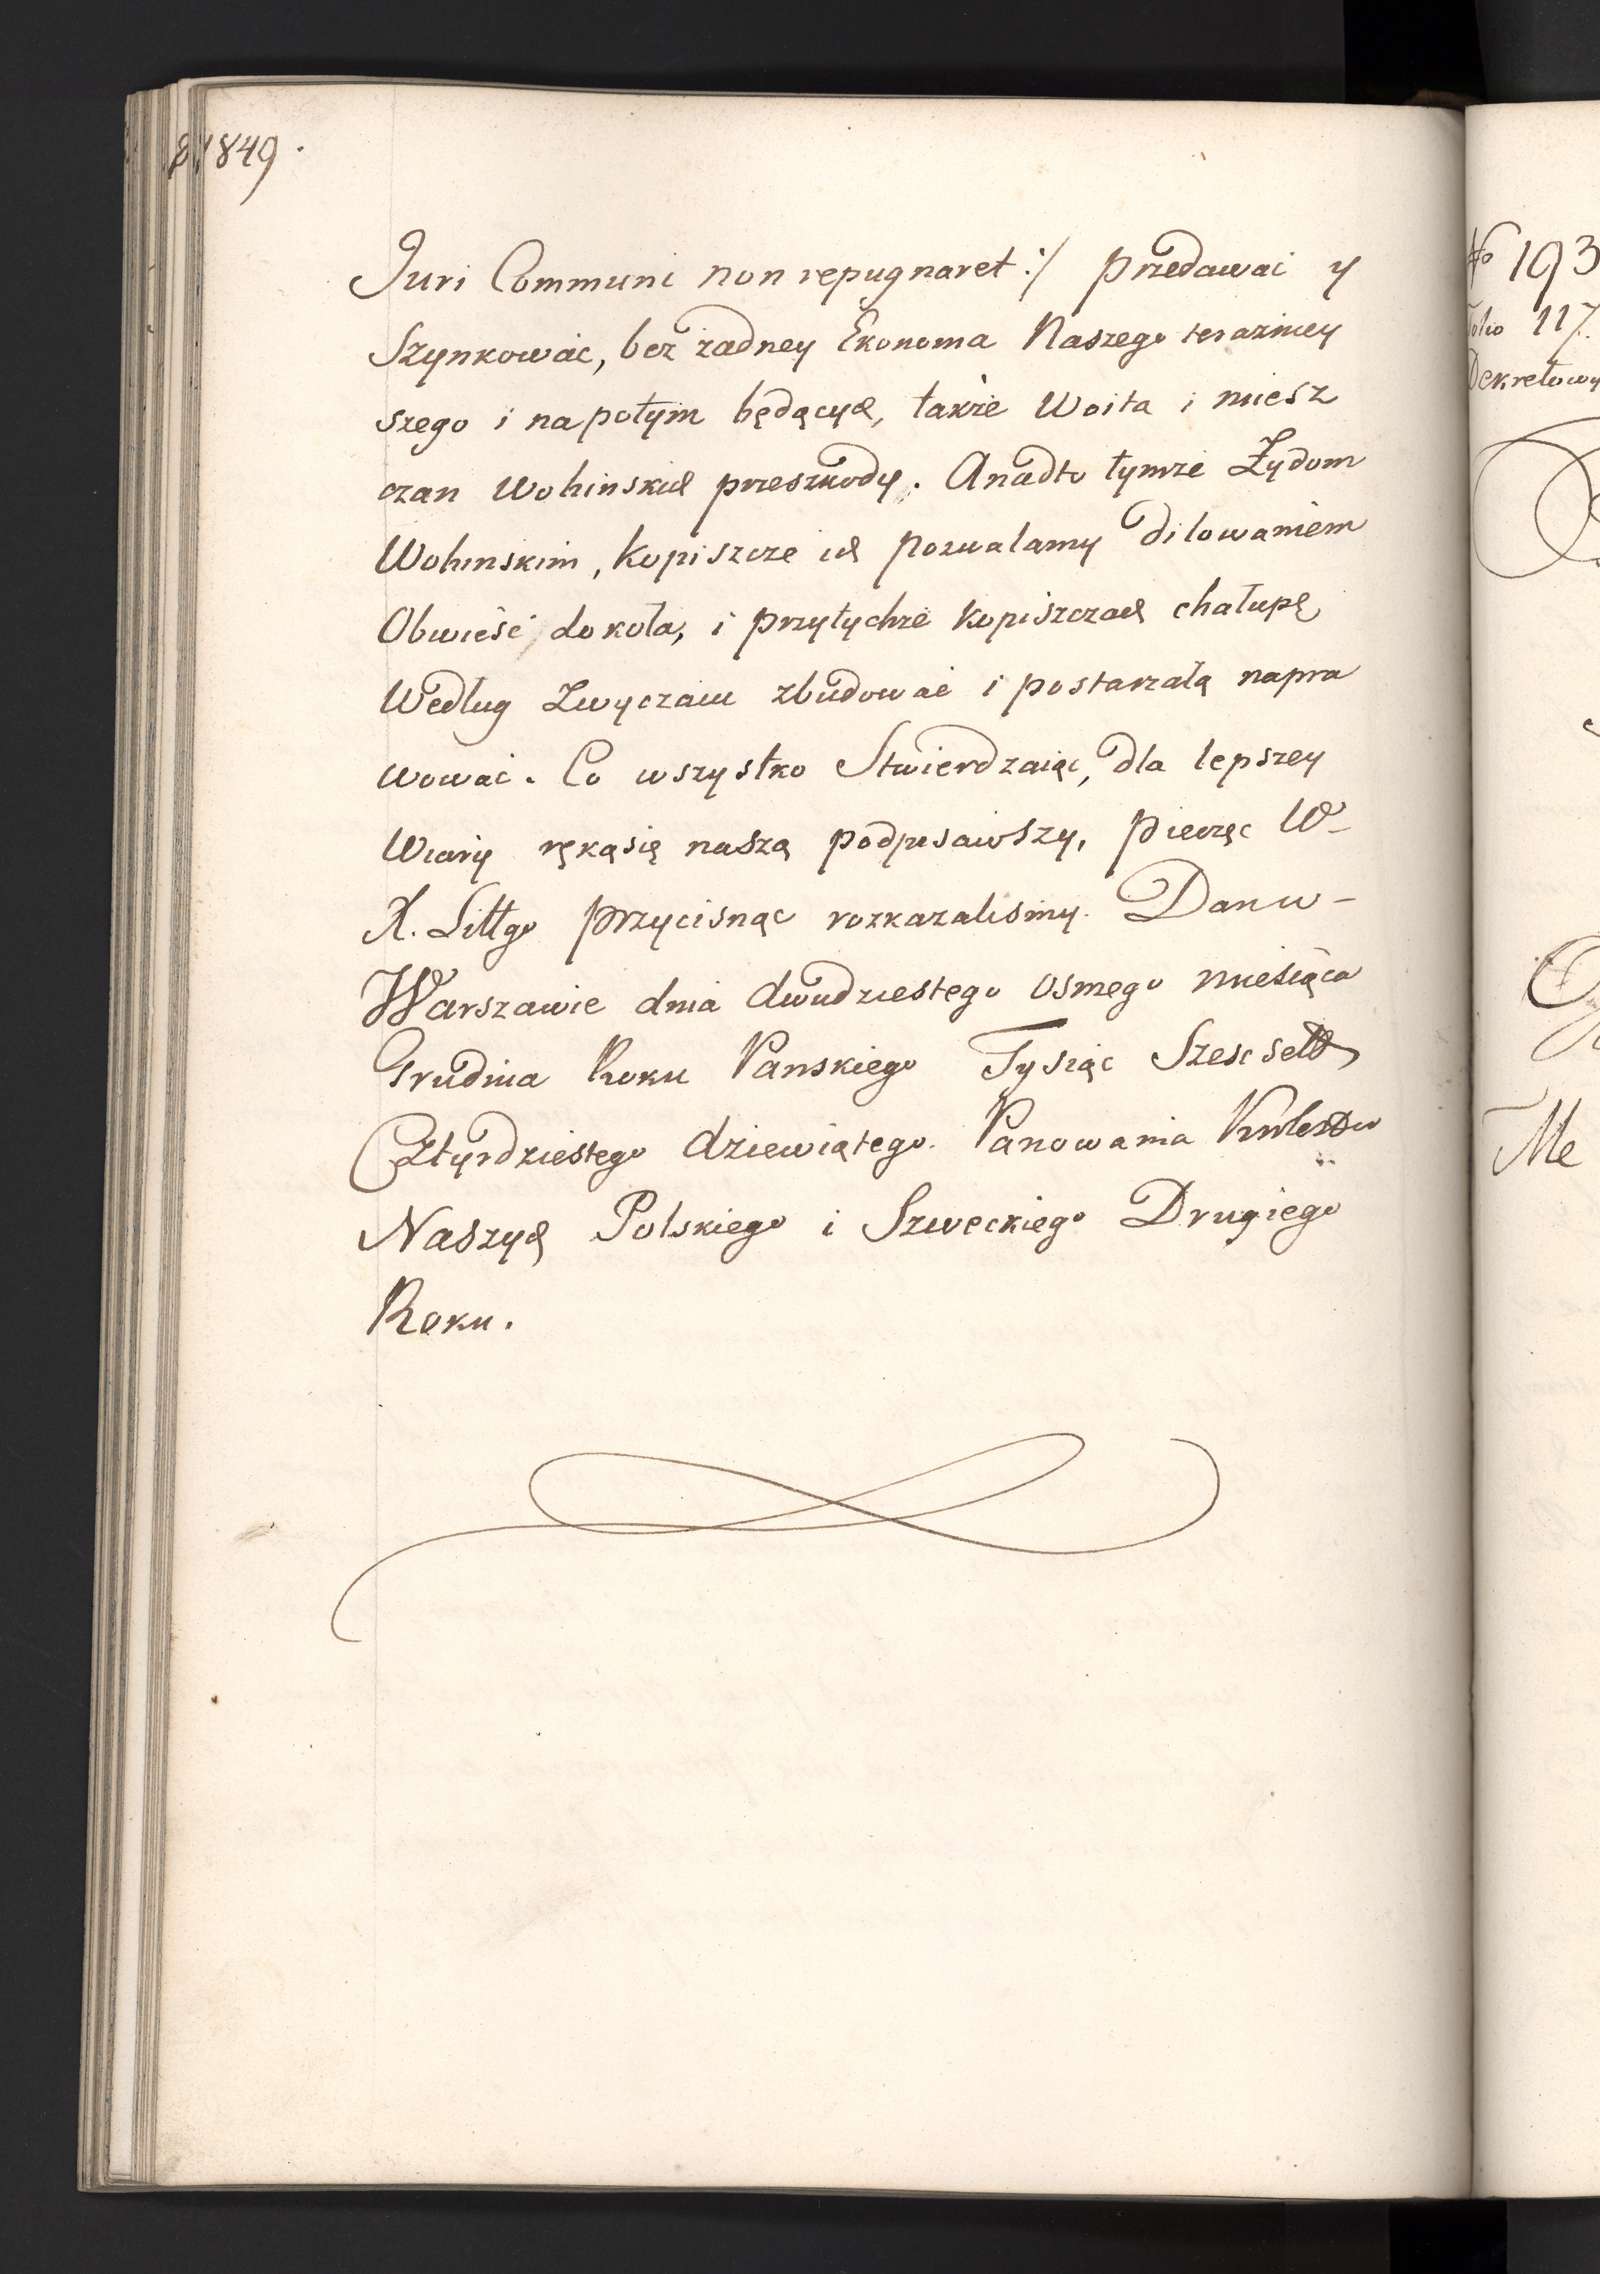 1849.
Juri Communi non repugnaret :/ przedawać y
Szynkować, bez żadney Ekonoma Naszego terazniey
szego i napotym będących, także Woita i miesz
czan Wohinskich przeszkody. Anadto tymże Żydom
Wohinskim, Kopiszcze ich pozwalamy dilowaniem
Obwieść dokoła, i przytychże Kopiszczach chałupę
Według Zwyczaiu zbudować i postarzałą napra
wować. Co wszystko Stwierdzaiąc, dla lepszey
Wiary ręką się naszą podpisawszy, pieczęc W-
X. Littgo przycisnąc rozkazalismy. Dan w-
Warszawie dnia dwudziestego osmego miesiąca
Grudnia Roku Panskiego Tysiąc Szescset
Cztyrdziestego dziewiątego. Panowania Krolestw
Naszych Polskiego i Szweckiego Drugiego
Roku.
No 193
Folio 117.
Dekretowy
Me